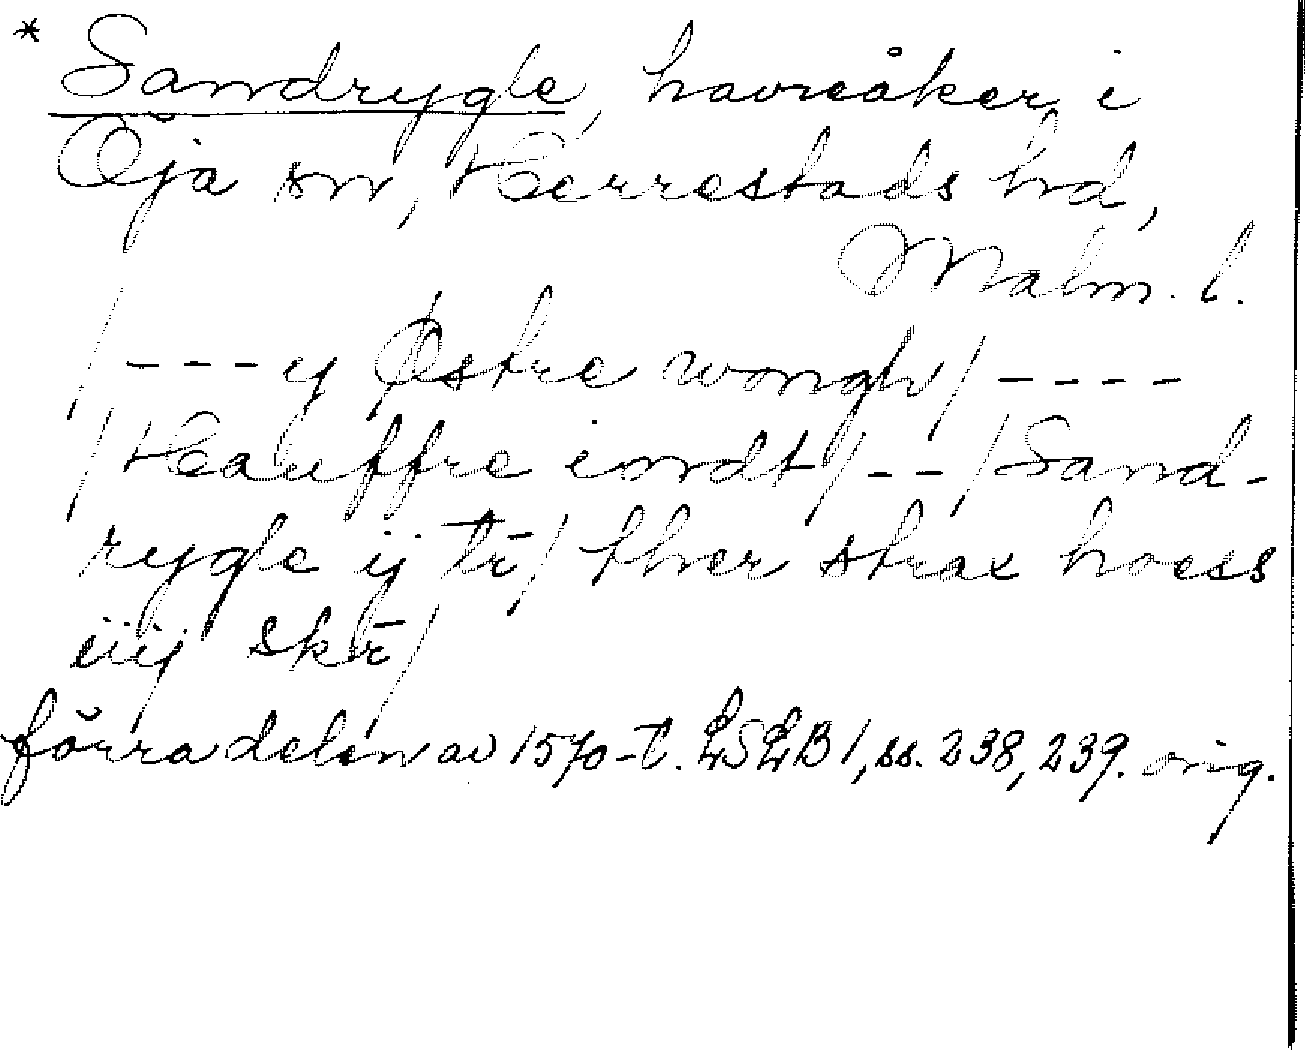 * Sandrygle, havreåker i
Öja sn, Herrestads hd,
Malm. l.
/ --- y Østre wongh / ----
/ Hauffre indt / -- / Sand-
rygle ij tr̄ / ther strax hoess
iiij skr̄ /
förra delen av 1570-t. LSLB 1, ss. 238, 239. orig.